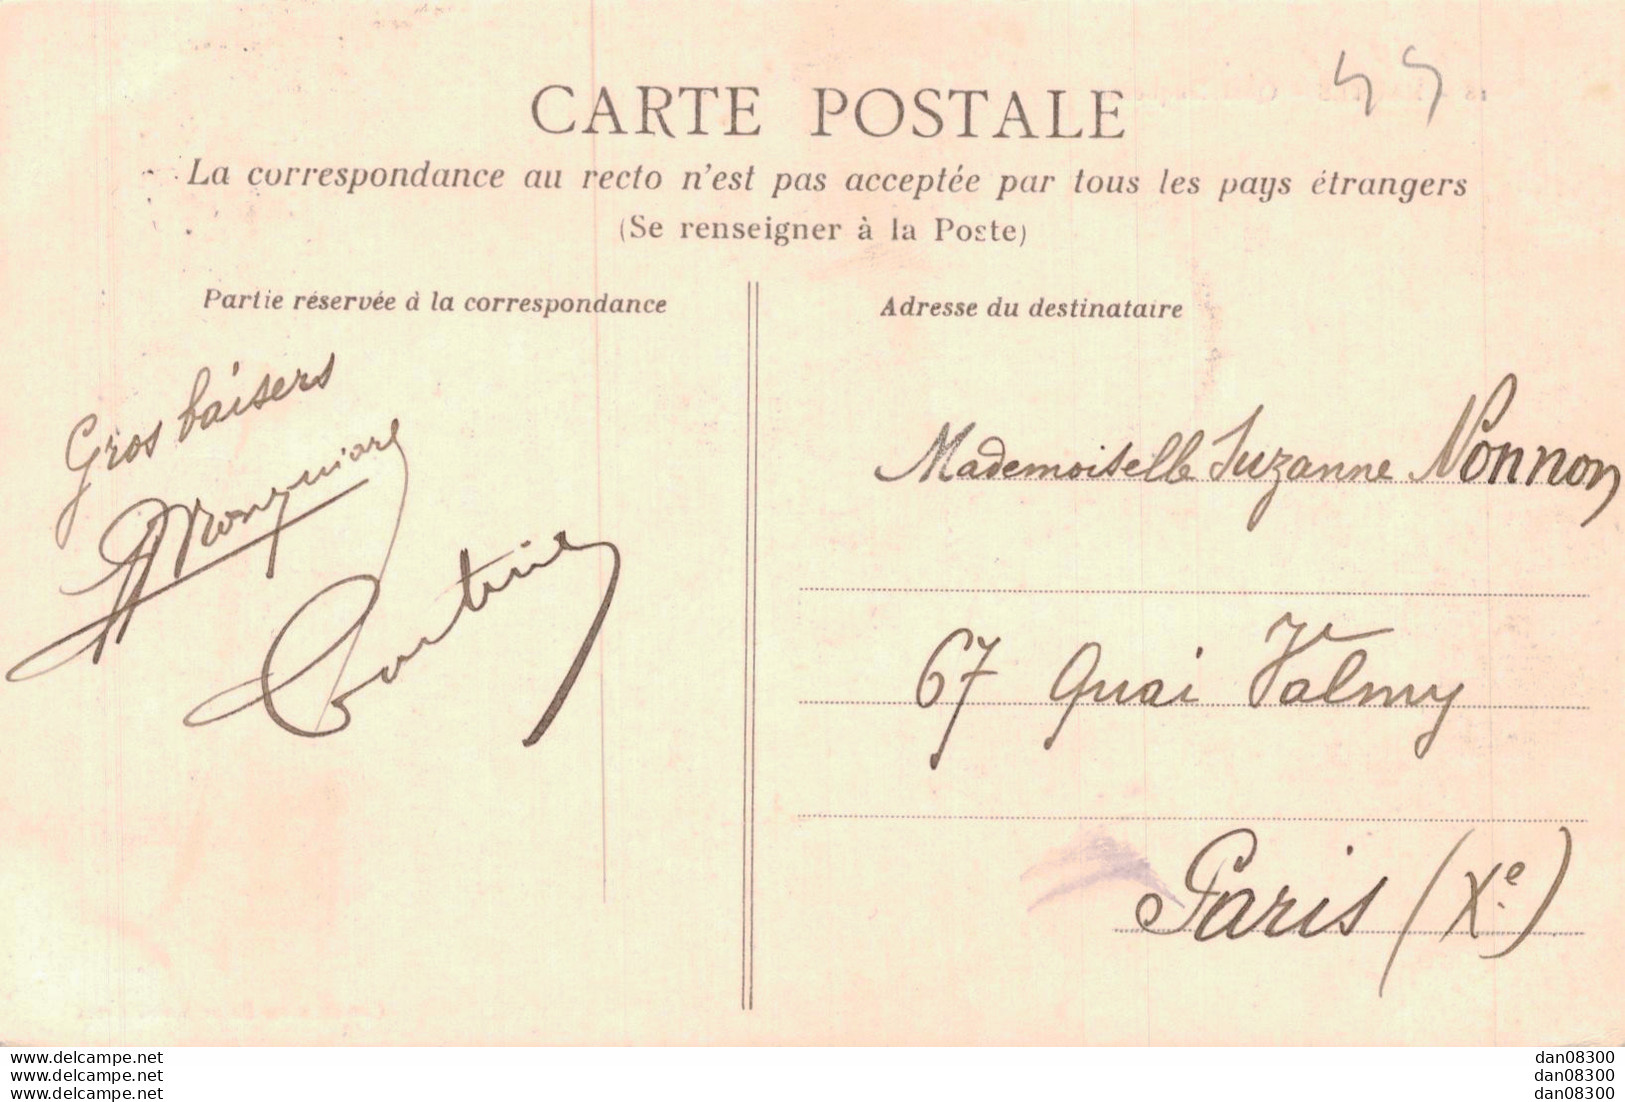 44
CARTE POSTALE
La correspondance au recto n'est pas acceptée par tous les pays étrangers
(Se renseigner à la Poste)
Partie réservée à la correspondance
Gros baisers
Adresse du destinataire
Mademoiselle Suzanne Nonnon
67 Quai Valmy
Paris (Xe)
www.delcampe.net
www.delcampe.net
www.delcampe.net
dan08300
dan08300
dan08300